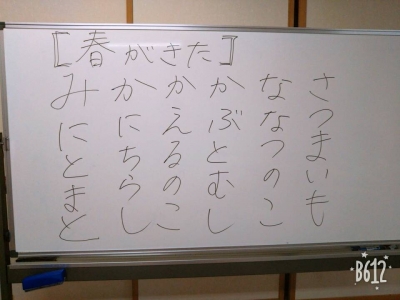 【春がきた】
さつまいも
ななつのこ
かぶとむし
かえるのこ
かにちらし
みにとまと
B612